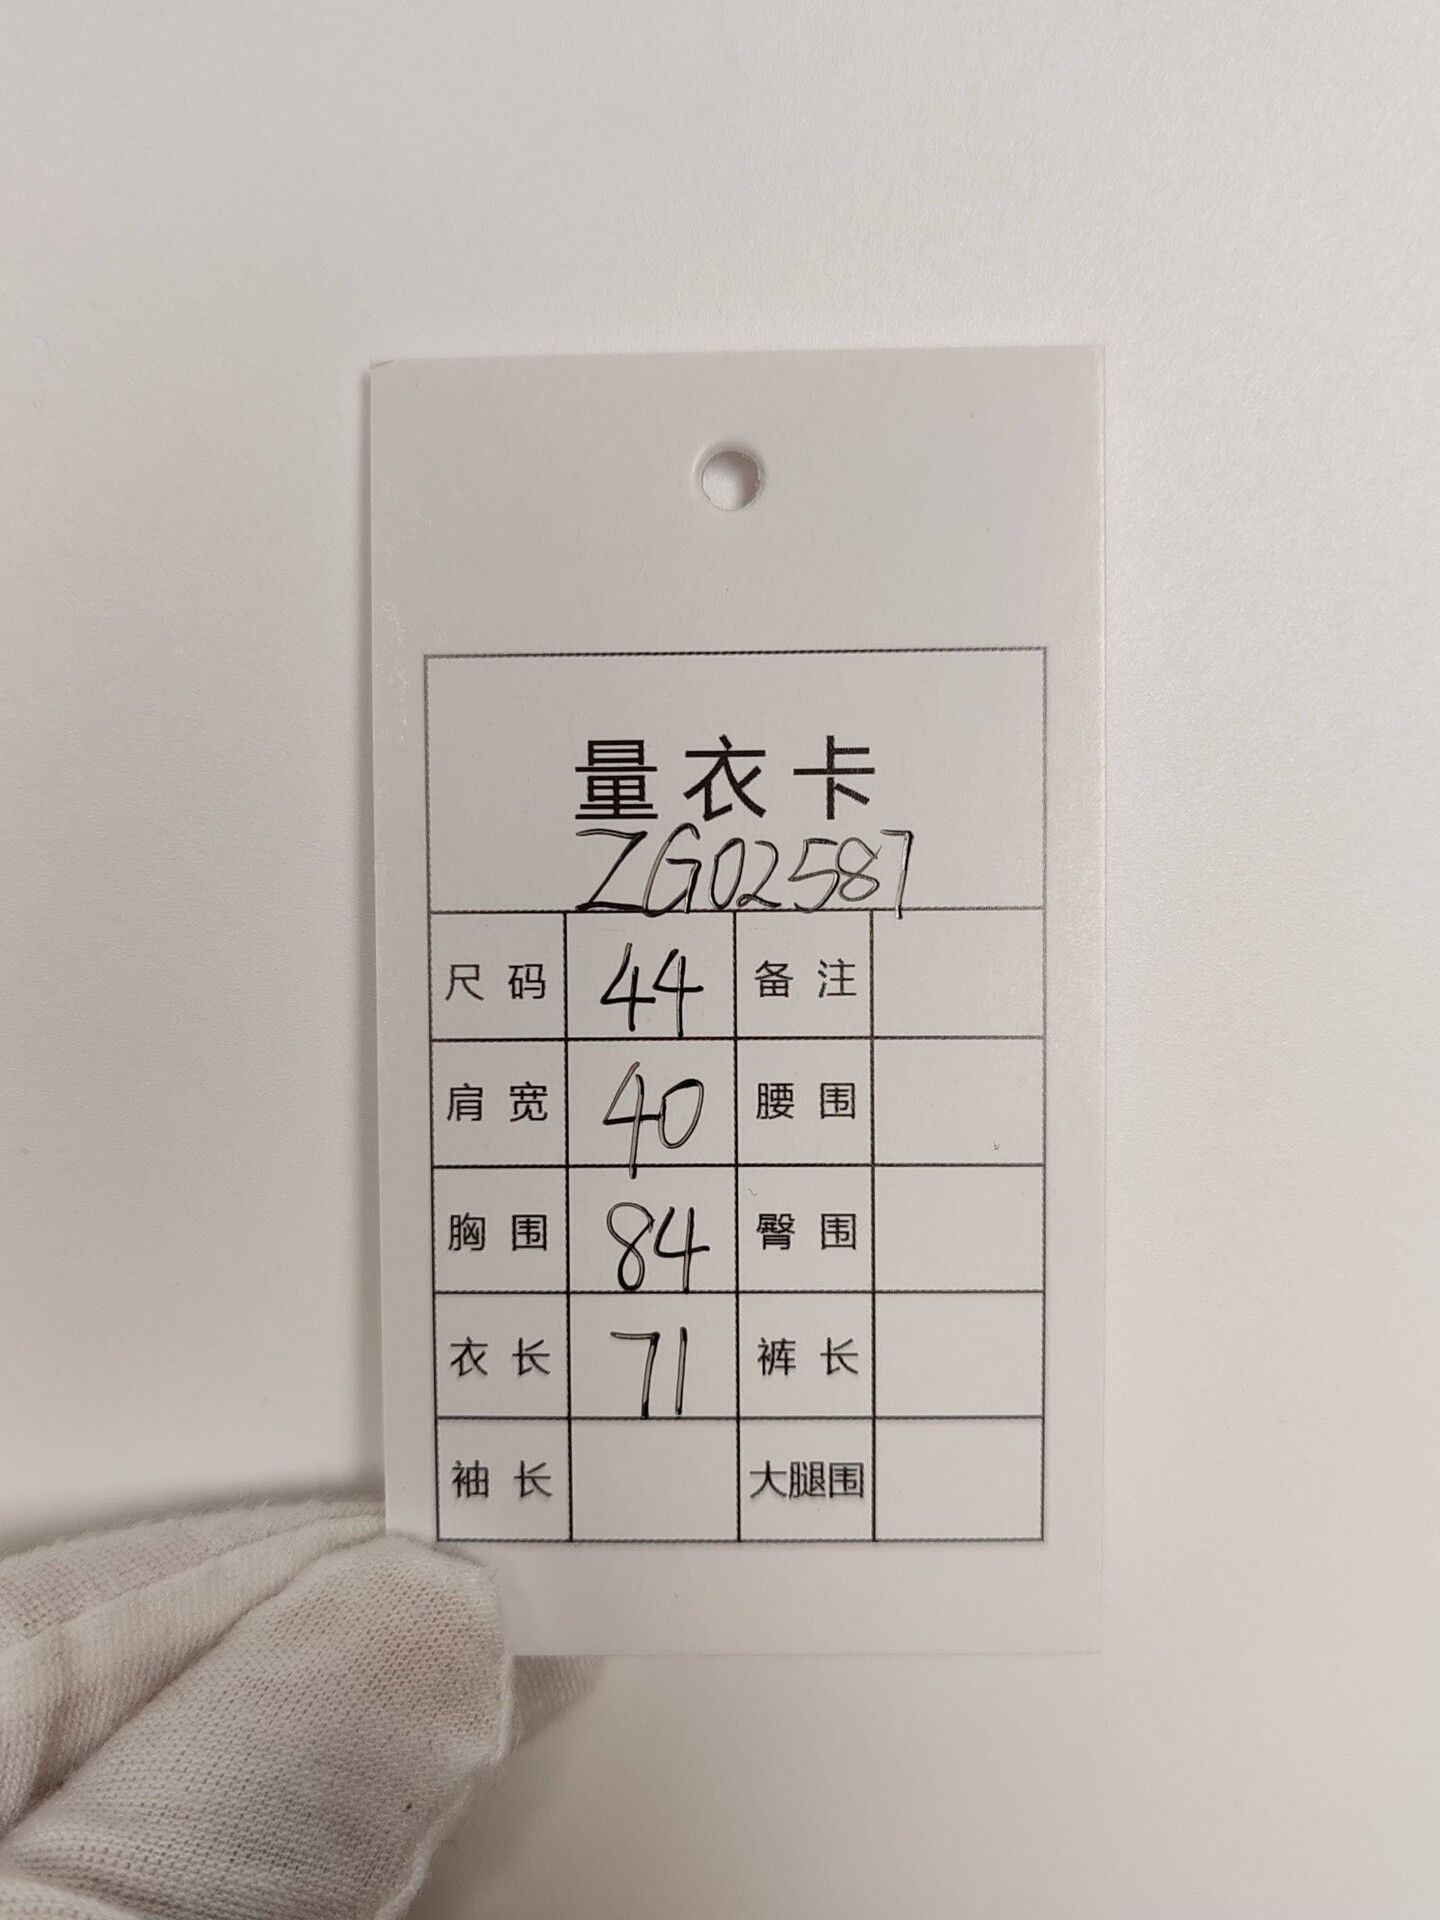 量衣卡
ZG02587
尺码 44 备注
肩宽 40 腰围
胸围 84 臀围
衣长 71 裤长
袖长 大腿围